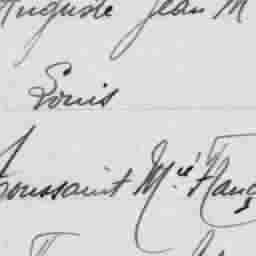 Auguste Jean M
Louis
Toussaint M.ie